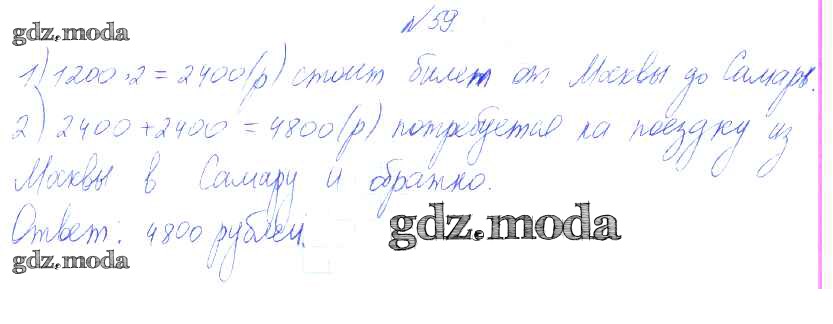 № 59.
gdz.moda
1) 1200 · 2 = 2400 (р) стоит билет от Москвы до Самары.
2) 2400 + 2400 = 4800 (р) потребуется на поездку из
Москвы в Самару и обратно.
Ответ: 4800 рублей.
gdz.moda
gdz.moda